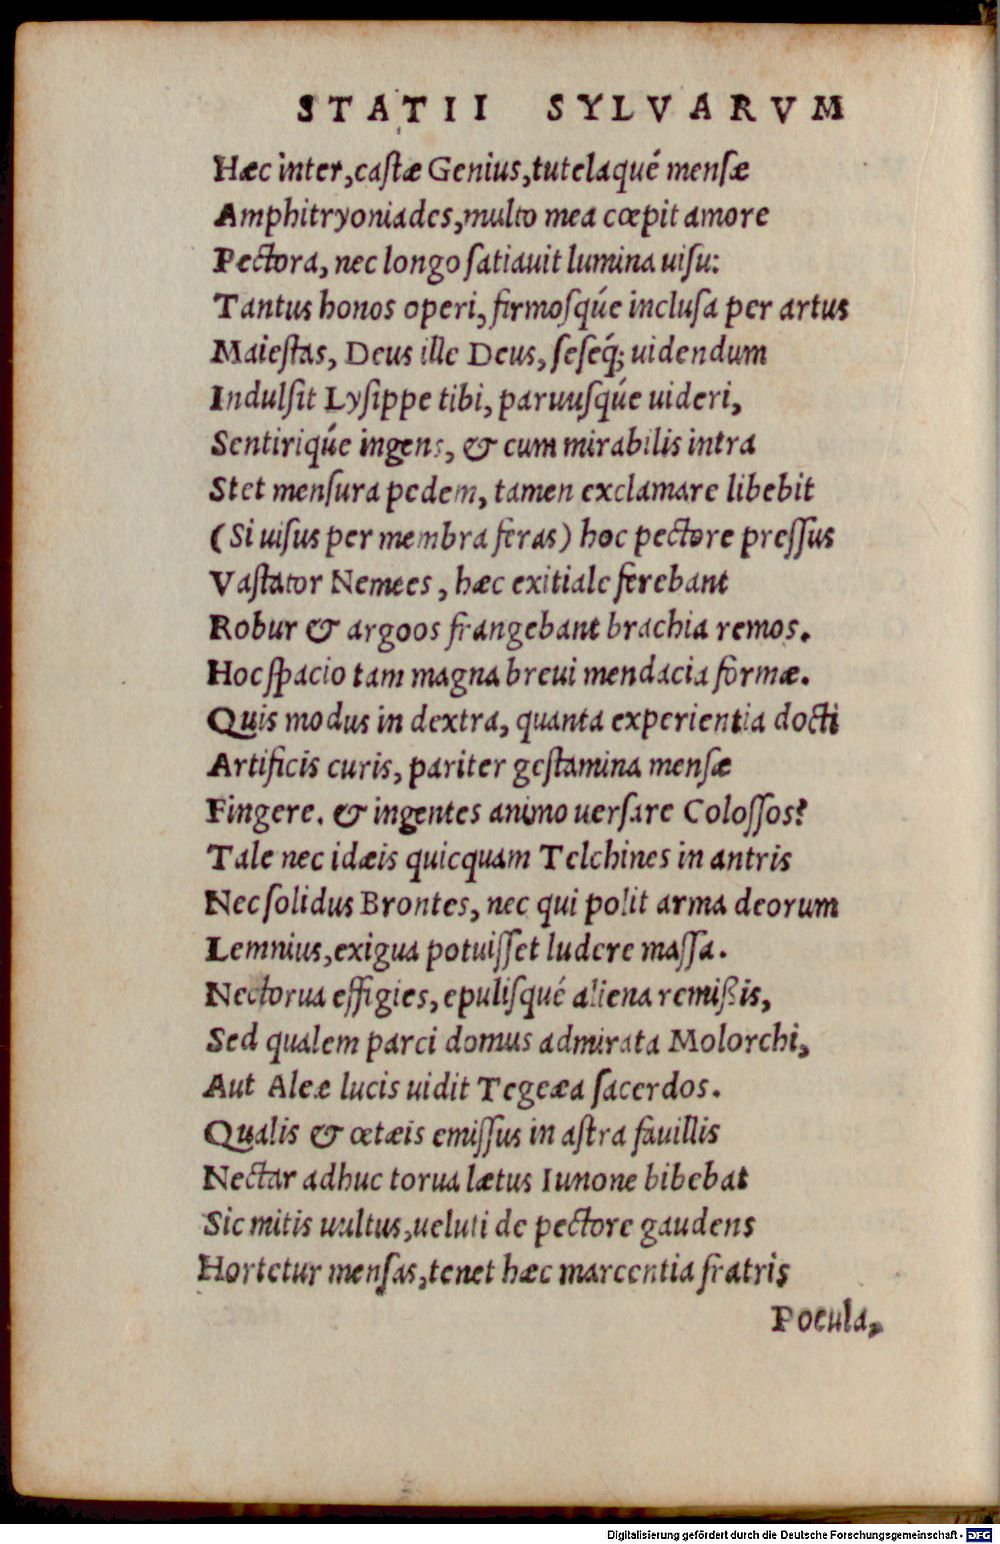 STATII SYLVARVM
Hæc inter,castæ Genius,tutelaqué mensæ
Amphitryoniades,multo mea cœpit amore
Pectora, nec longo satiauit lumina uisu:
Tantus honos operi, firmosq́ue inclusa per artus
Maiestas, Deus ille Deus, seseq́; uidendum
Indulsit Lysippe tibi, paruusq́ue uideri,
Sentiriq́ue ingens, & cum mirabilis intra
Stet mensura pedem, tamen exclamare libebit
(Si uisus per membra feras) hoc pectore pressus
Vastator Nemees, hæc exitiale ferebant
Robur & argoos frangebant brachia remos.
Hoc spacio tam magna breui mendacia formæ.
Quis modus in dextra, quanta experientia docti
Artificis curis, pariter gestamina mensæ
Fingere. & ingentes animo uersare Colossos?
Tale nec idæis quicquam Telchines in antris
Nec solidus Brontes, nec qui polit arma deorum
Lemnius,exigua potuisset ludere massa.
Nec torua effigies, epulisqué aliena remißis,
Sed qualem parci domus admirata Molorchi,
Aut Aleæ lucis uidit Tegeæa sacerdos.
Qualis & œtæis emissus in astra fauillis
Nectar adhuc torua lætus Iunone bibebat
Sic mitis uultus,ueluti de pectore gaudens
Hortetur mensas,tenet hæc marcentia fratris
Pocula,
Digitalisierung gefördert durch die Deutsche Forschungsgemeinschaft - DFG